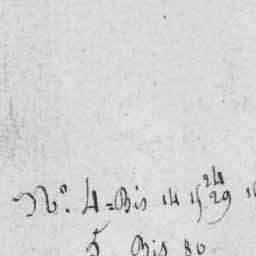 No. 4 = Bis 14 15 24 29
5 Bis 80